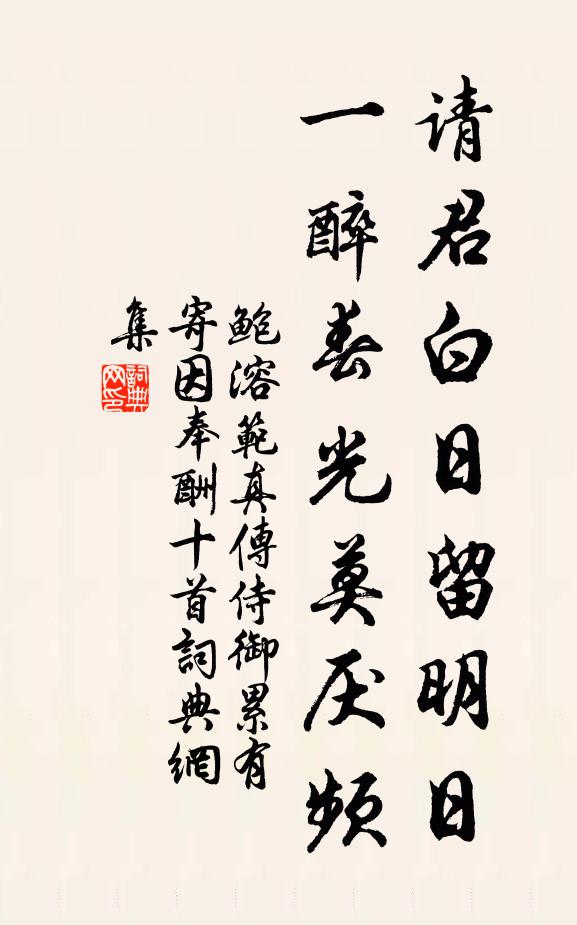 请君白日留明日
一醉春光莫厌频
鲍溶範真傳侍御累有
寄因奉酬十首詞典網
集
詞典
网印